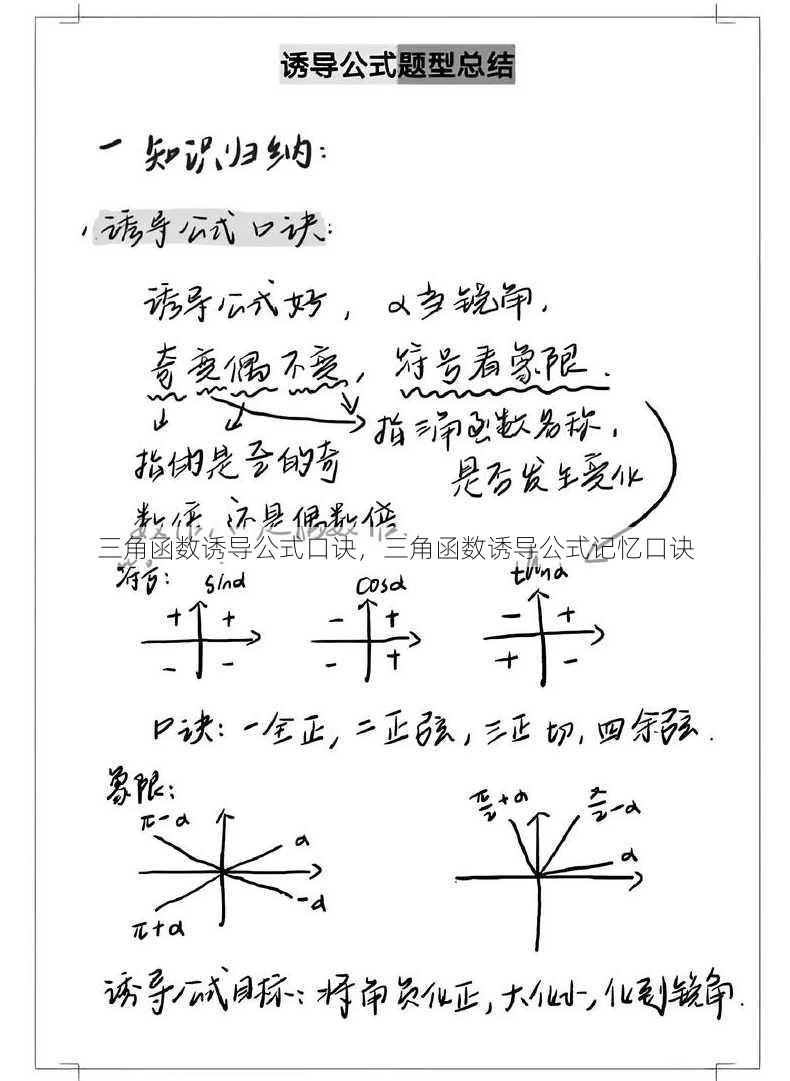 诱导公式题型总结
一 知识归纳：
1. 诱导公式口诀：
诱导公式好，α当锐角，
奇变偶不变，符号看象限.
指的是π/2的奇
数倍还是偶数倍
指三角函数名称，
是否发生变化
三角函数诱导公式口诀，三角函数诱导公式记忆口诀
符号： sinα cosα tanα
+ + - + - +
- - - + + -
口诀：一全正，二正弦，三正切，四余弦.
象限：
π-α α π/2+α π/2-α α
π+α -α
诱导公式目标：将角负化正，大化小，化到锐角.